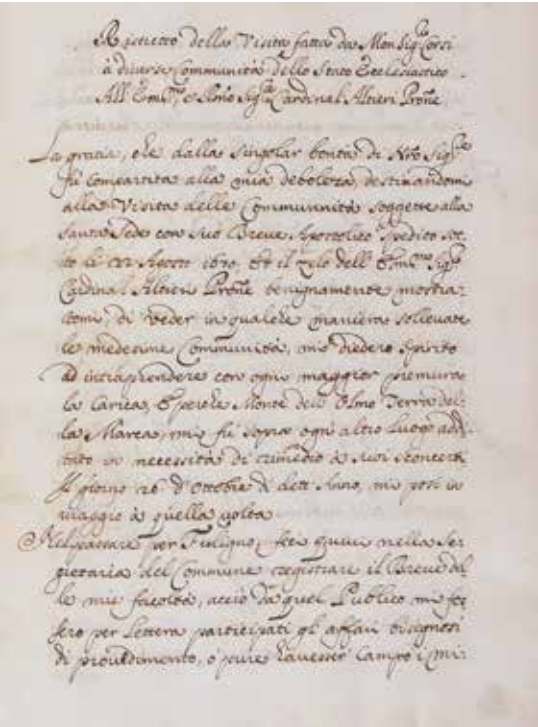 Ristretto della Visita fatta da Monsig.re Corsi
à diverse Communità dello Stato Ecclesiastico
All' Em.mo, e R.mo Sig.re Cardinal Altieri Prone
La gratia, che dalla singolar bontà di Nro Sig.re
fù compartita alla mia debolezza, destinandomi
alla Visita delle Communità soggette alla
Santa Sede con suo Breve Apostolico spedito sot-
to li 22 Agosto 1670, Et il zelo dell' Em.mo Sig.re
Cardinal Altieri Prone benignamente mostra-
tomi, di veder in qualche maniera sollevate
le medesime Communità, mi diedero spirito
ad intraprendere con ogni maggior premura
la carica, E perche Monte dell' Olmo Terra del-
la Marca, mi fù sopra ogni altro luogo addi-
tato in necessità di rimedio à suoi sconcerti
Il giorno 26 d'Ottobre di dett' Anno, mi posi in
viaggio à quella volta
Nel passare per Fuligno, feci quivi nella Se-
gretaria del Commune registrare il Breve del-
le mie facoltà, acciò da quel Publico mi fos-
sero per lettera participati gl' affari bisognosi
di provedimento, ò pure havesser campo i mi-